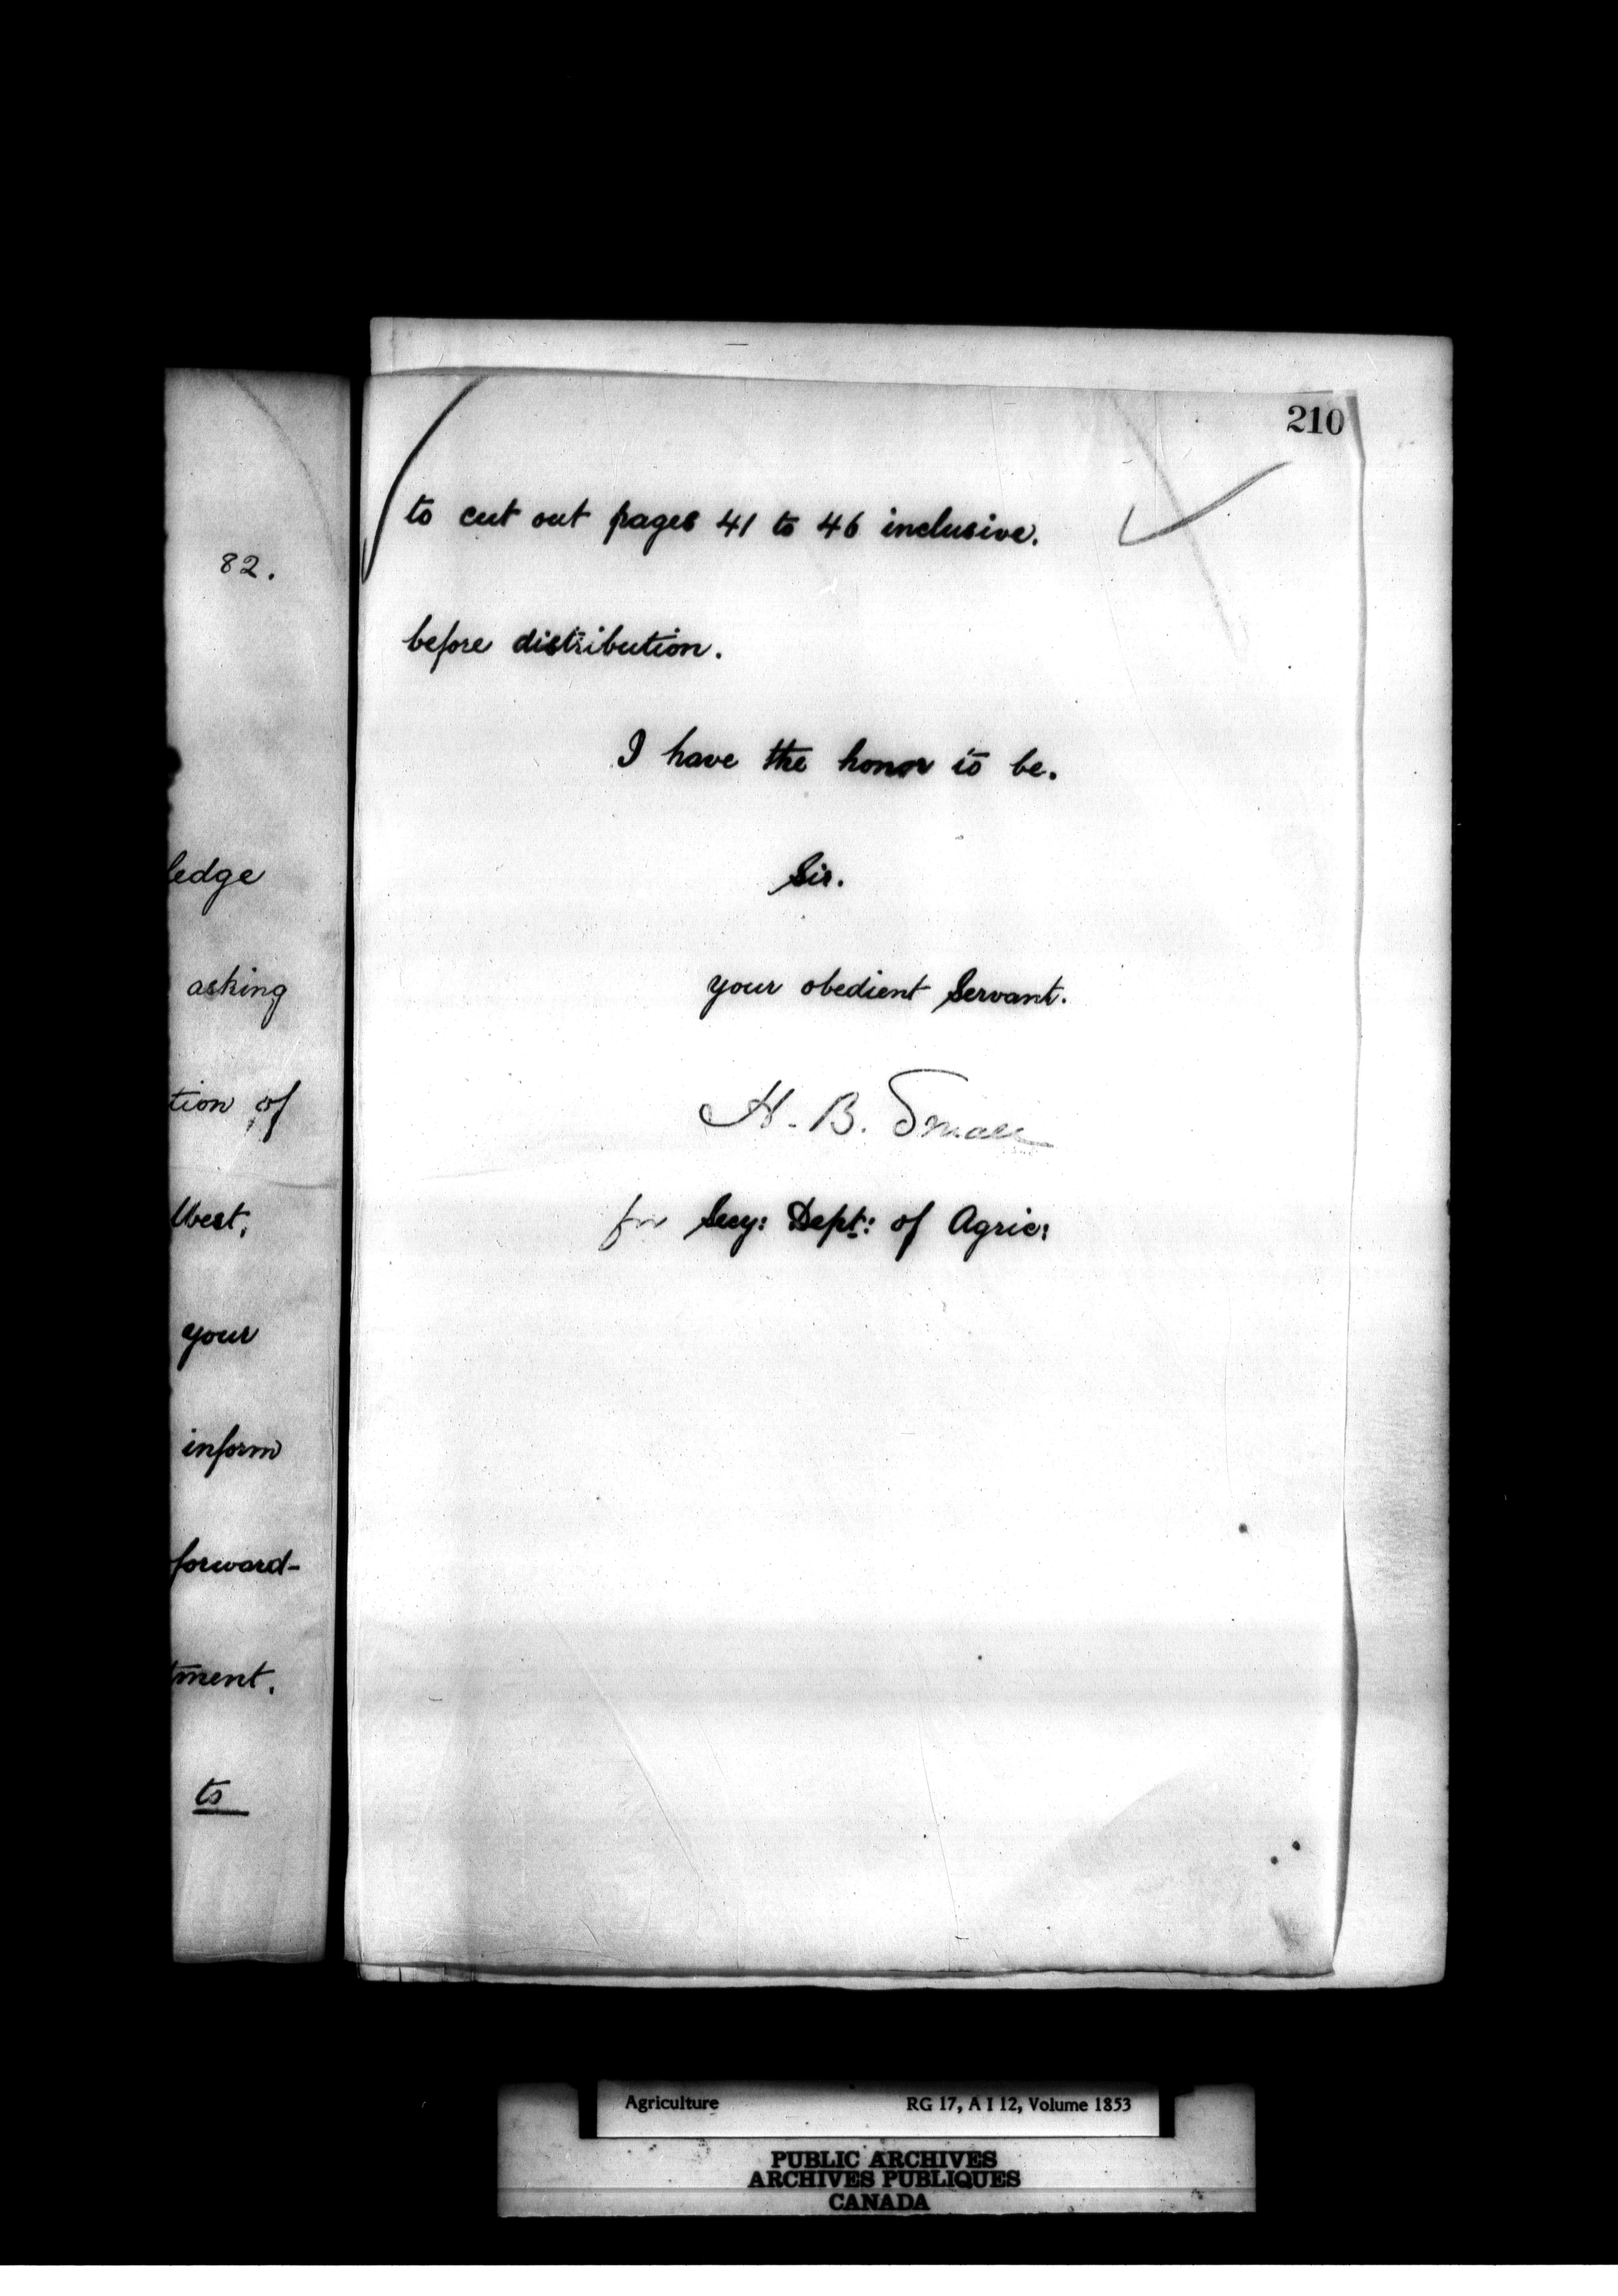 82.
ledge
asking
tion of
West,
your
inform
forward-
tment.
to
210
to cut out pages 41 to 46 inclusive.
before distribution.
I have the honor to be.
Sir.
your obedient Servant.
H. B. Small
for Secy: Dept: of Agric:
Agriculture RG 17, A I 12, Volume 1853
PUBLIC ARCHIVES
ARCHIVES PUBLIQUES
CANADA